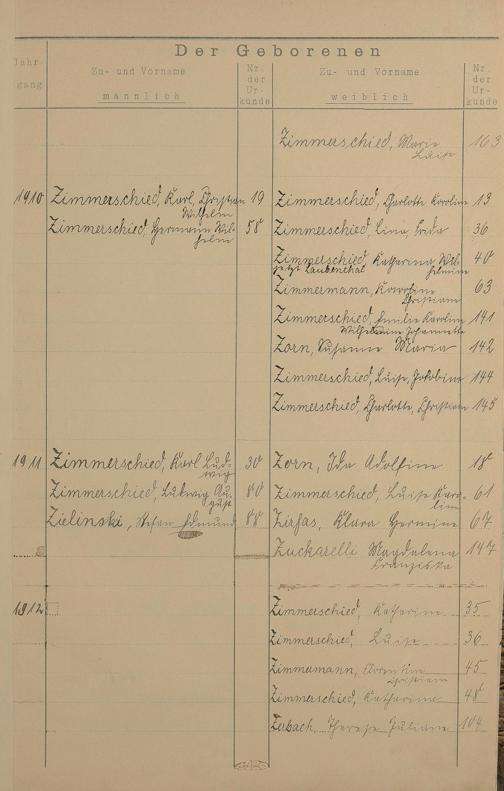 Der Geborenen
Jahrgang
Zu- und Vorname
männlich
Nr.
der
Urkunde
Zu- und Vorname
weiblich
Nr.
der
Urkunde
Zimmerschied, Marie
Luise
163
1910 Zimmerschied, Karl, Christian 19
Wilhelm
Zimmerschied, Charlotte Karoline 13
Zimmerschied, Hermann Wil-
helm
58
Zimmerschied, Lina, Frida 36
Zimmerschied Katharina, Wil-
helmine
40
jetzt Laubenthal
Zimmermann, Karoline
Christiane
63
Zimmerschied, Emilie Karoline 141
Wilhelmine Johannette
Zorn, Susanne Maria 142
Zimmerschied, Luise, Jakobine 144
Zimmerschied, Charlotte, Christiane 145
1911 Zimmerschied, Karl Lud-
wig
30
Zorn, Ida Adolfine 18
Zimmerschied, Ludwig Au-
gust
80
Zimmerschied, Luise Karo-
line
61
Zielinski, Stefan Edmund 88
Zirfas, Klara Hermine 67
Zuckarelli Magdalena
Franziska
147
1912
Zimmerschied, Katharine 35
Zimmerschied, Luise 36
Zimmermann,
Christiane
45
Zimmerschied, Katharine 48
Zerbach, Therese Juliane 104